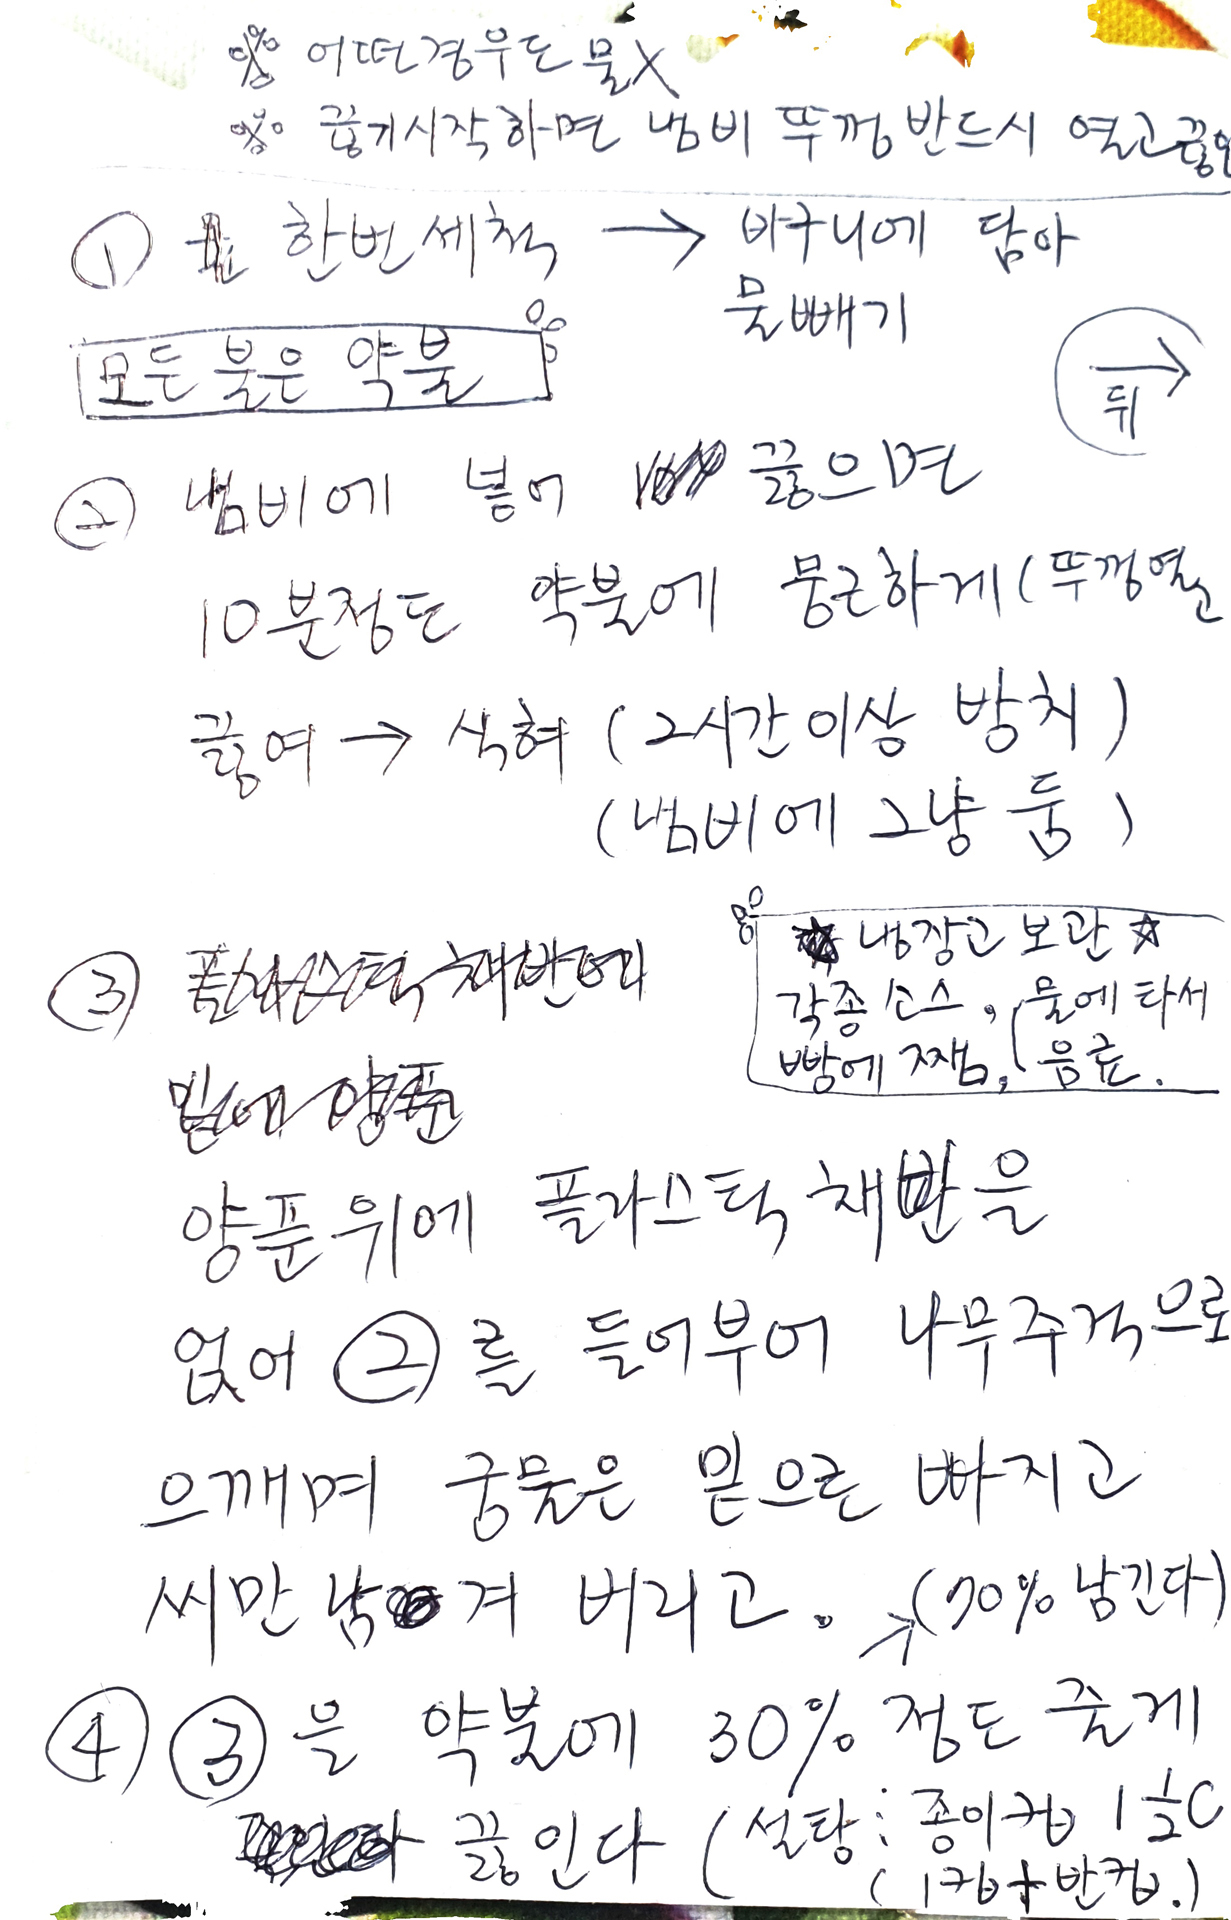 ※ 어떠경우도 물X
※ 끓기시작하면 냄비 뚜껑 반드시 열고
① 한번세척 → 바구니에 담아
물빼기
모든 불은 약불
→
뒤
② 냄비에 넣어 끓으면
10분정도 약불에 뭉근하게 (뚜껑열고
끓여 → 식혀 (2시간이상 방치)
(냄비에 그냥 둠)
☆ 냉장고 보관 ☆
각종 소스, 물에 타서
빵에 쨈, 음료.
③
양푼위에 플라스틱 채반을
얹어 ②를 들어부어 나무주걱으로
으깨며 궁물은 밑으로 빠지고
씨만 남겨 버리고.
(70% 남긴다)
④ ③을 약불에 30% 정도 줄게
끓인다 (설탕: 종이컵 1 1/2C
(1컵+반컵.)